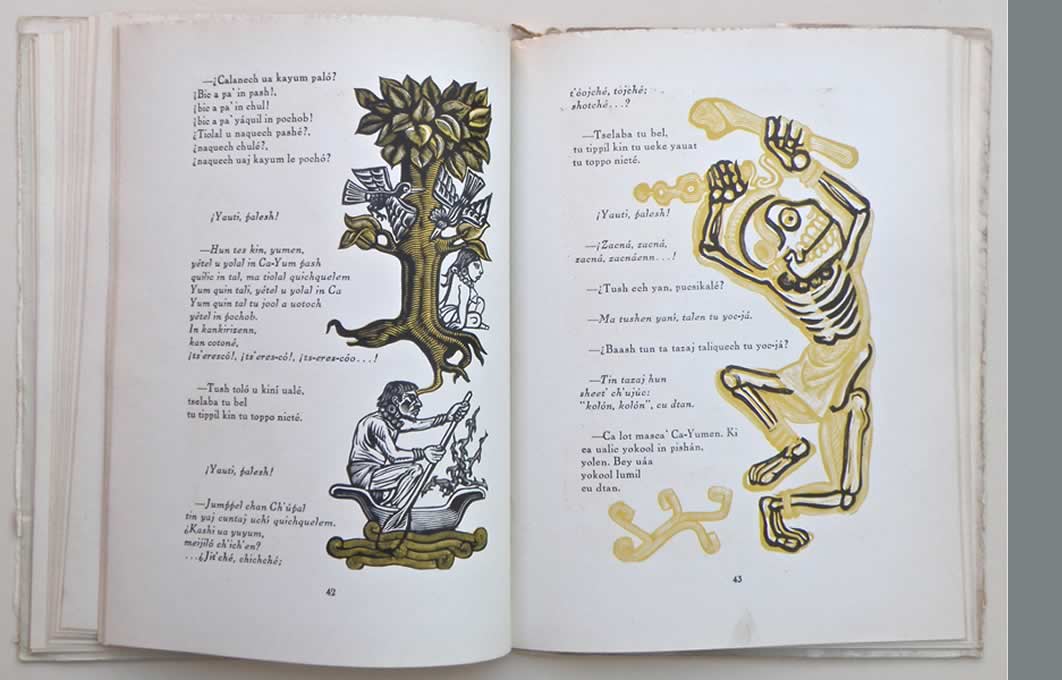 —¿Calanech ua kayum paló?
¡Bic a pa' in pash!,
¡bic a pa' in chul!
¡bic a pa' yáquil in pochob!
¿Tiolal u naquech pashé?,
¿naquech chulé?,
¿naquech uaj kayum le pochó?
¡Yauti, palesh!
—Hun tes kin, yumen,
yétel u yolal in Ca-Yum pash
quilic in tal, ma tiolal quichquelem
Yum quin tali, yétel u yolal in Ca
Yum quin tal tu jool a uotoch
yétel in pochob.
In kankirizenn,
kan cotoné,
¡ts'erescó!, ¡ts'eres-có!, ¡ts-eres-cóo...!
—Tush toló u kiní ualé,
tselaba tu bel
tu tippil kin tu toppo nicté.
¡Yauti, palesh!
—Jumppel chan Ch'úpal
tin yaj cuntaj uchí quichquelem.
¿Kashi ua yuyum,
meijiló ch'ich'en?
...¿Jit'ché, chichché;
42
t'óojché, tojché;
shotché...?
—Tselaba tu bel,
tu tippil kin tu ueke yauat
tu toppo nicté.
¡Yauti, palesh!
—¡Zacná, zacná,
zacná, zacnáenn...!
—¿Tush ech yan, pucsikalé?
—Ma tushen yaní, talen tu yoc-já.
—¿Baash tun ta tazaj taliquech tu yoc-já?
—Tin tazaj hun
sheet' ch'ujúc:
"kolón, kolón", cu dtan.
—Ca lot masca' Ca-Yumen. Ki
ca ualic yokool in pishán,
yolen. Bey uáa
yokool lumil
cu dtan.
43